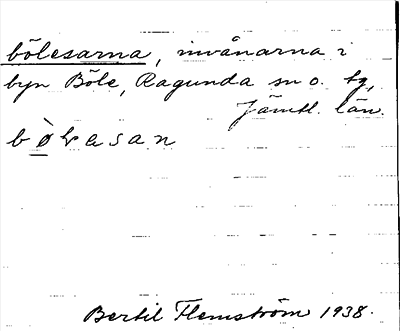 bölesarna, invånarna i
byn Böle, Ragunda sn o. tg,
Jämtl. län.
bø̀lesan
Bertil Flemström 1938.